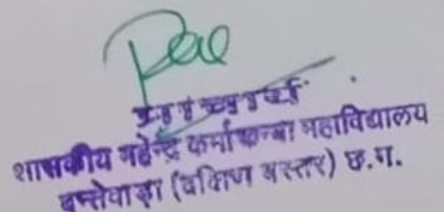 शासकीय महेन्द्र कर्मा कन्या महाविद्यालय
दन्तेवाड़ा (दक्षिण बस्तर) छ.ग.